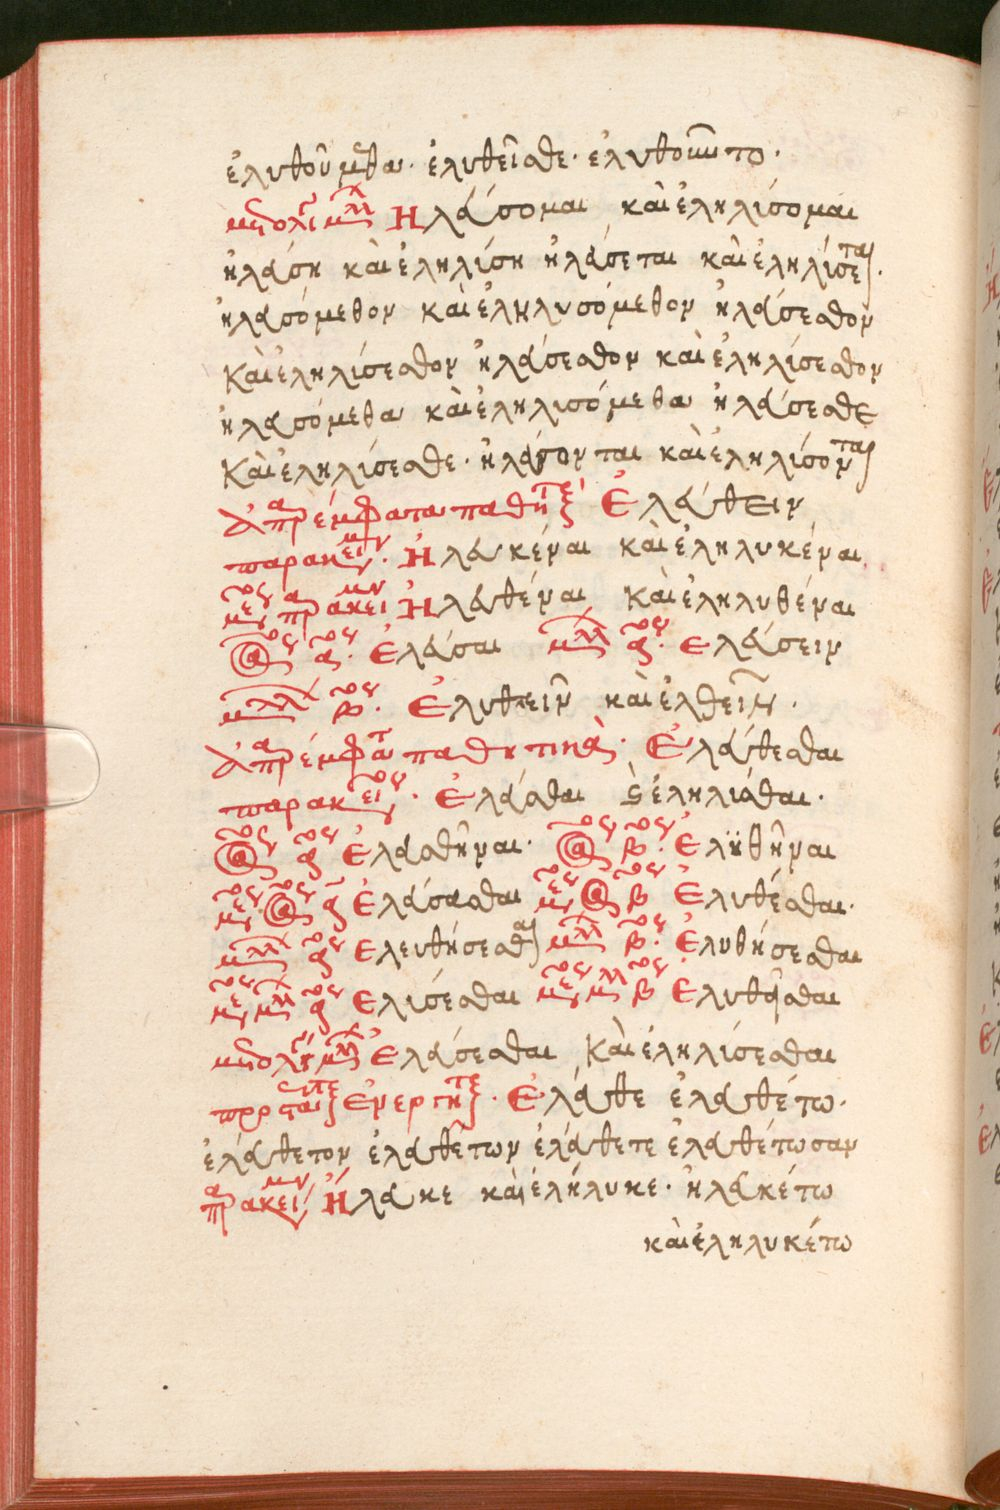 ἐλυθοῦμεθα· ἐλυθεῖσθε· ἐλυθοῦντο·
μετ' ὀλί μλλ Ηλάσομαι καὶ ἐληλίσομαι
ἠλάση καὶ ἐληλίση ἠλάσεται καὶ ἐληλίσεται·
ἠλασόμεθον καὶ ἐληλυσόμεθον ἠλάσεσθον
Καὶ ἐληλίσεσθον ἠλάσεσθον καὶ ἐληλίσεσθον
ἠλασόμεθα καὶ ἐληλισόμεθα ἠλάσεσθε
Καὶ ἐληλίσεσθε· ἠλάσονται καὶ ἐληλίσονται
Ἀπαρέμφατα Ἐλάθειν
παρακειμν· Ἠλακέναι καὶ ἐληλυκέναι
Ἠλαθέναι Καὶ ἐληλυθέναι
α· Ἐλάσαι μλλ α· Ελάσειν
μλλ β· Ἐλυθειν καὶ ἐλθεῖν·
Ἀπαρέμφατα παθητικὰ· Ἐλάθεσθαι
παρακει· Ἐλάσθαι ἐληλιάσθαι·
α Ἐλασθῆναι· β· Ἐλϋθῆναι
α Ἐλάσασθαι β Ἐλυθέσθαι·
μλλ α Ελευθήσεσθαι μλλ β· Ἐλυθήσεσθαι
μλλ α Ελισέσθαι μλλ β Ἐλυθῆσθαι
μετ' ὀλί μλλ Ἐλάσεσθαι Καὶ ἐληλίσεσθαι
Ἐνεργη· Ἐλάθε ἐλαθέτω·
ἐλάθετον ἐλαθέτων ἐλάθετε ἐλαθέτωσαν
πρακειμν Ἤλακε καὶ ἐλήλυκε· ἠλακέτω
καὶ ἐληλυκέτω